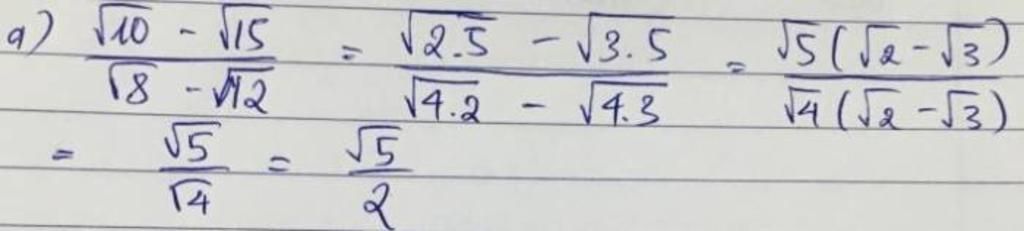 a) \frac{\sqrt{10} - \sqrt{15}}{\sqrt{8} - \sqrt{12}} = \frac{\sqrt{2.5} - \sqrt{3.5}}{\sqrt{4.2} - \sqrt{4.3}} = \frac{\sqrt{5}(\sqrt{2} - \sqrt{3})}{\sqrt{4}(\sqrt{2} - \sqrt{3})}
= \frac{\sqrt{5}}{\sqrt{4}} = \frac{\sqrt{5}}{2}